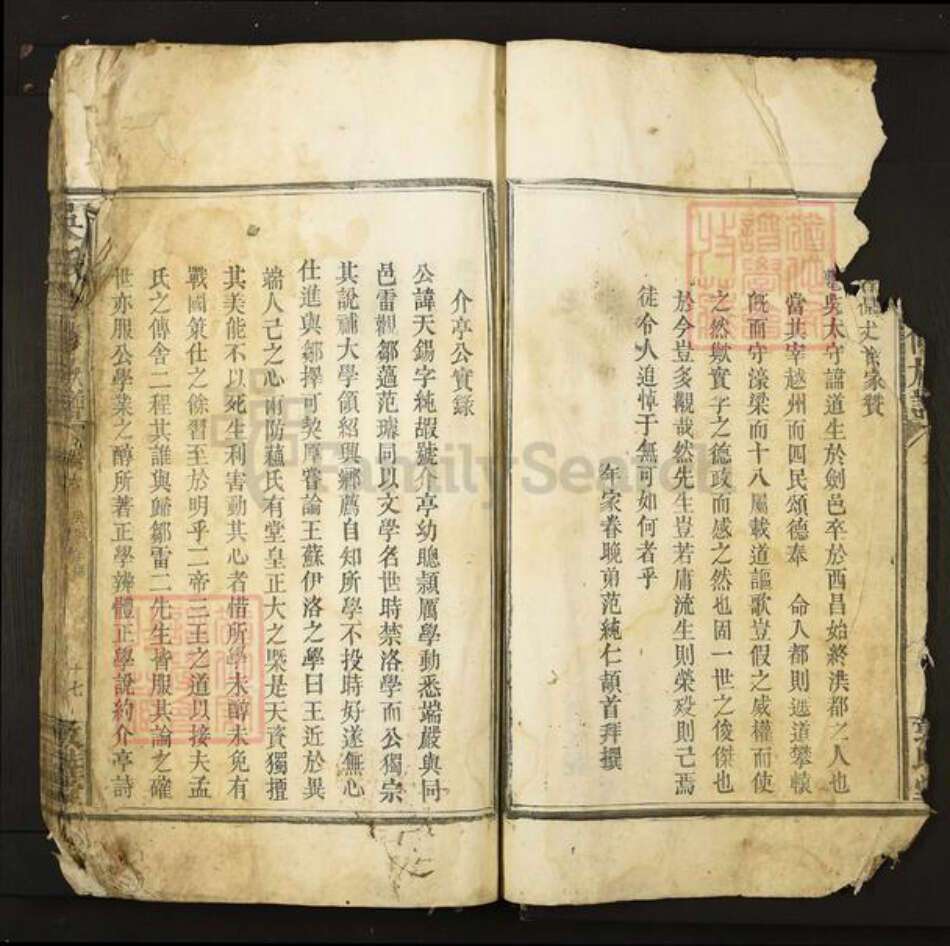 吳太守諱道生於劍邑卒於西昌始終洪都之人也
當其宰越州而四民頌德奉　命入都則遮道攀轅
既而守濠梁而十八屬載道謳歌豈假之威權而使
之然歟實字之德政而感之然也固一世之俊傑也
於今豈多觀哉然先生豈若庸流生則榮歿則已焉
徒令人追悼于無可如何者乎
年家眷晚弟范純仁頓首拜撰
介亭公實錄
公諱天錫字純嘏號介亭幼聰頴厲學動悉端嚴與同
邑雷觀鄒薖范璿同以文學名世時禁洛學而公獨宗
其說補大學領紹興鄉薦自知所學不投時好遂無心
仕進與鄒擇可契厚嘗論王蘇伊洛之學曰王近於異
端人己之心兩防蘓氏有堂皇正大之槩是天資獨擅
其美能不以死生利害動其心者惜所學未醇未免有
戰國策仕之餘習至於明乎二帝三王之道以接夫孟
氏之傳舍二程其誰與歸鄒雷二先生皆服其論之確
世亦服公學業之醇所著正學辨體正學說約介亭詩
十七
FamilySearch